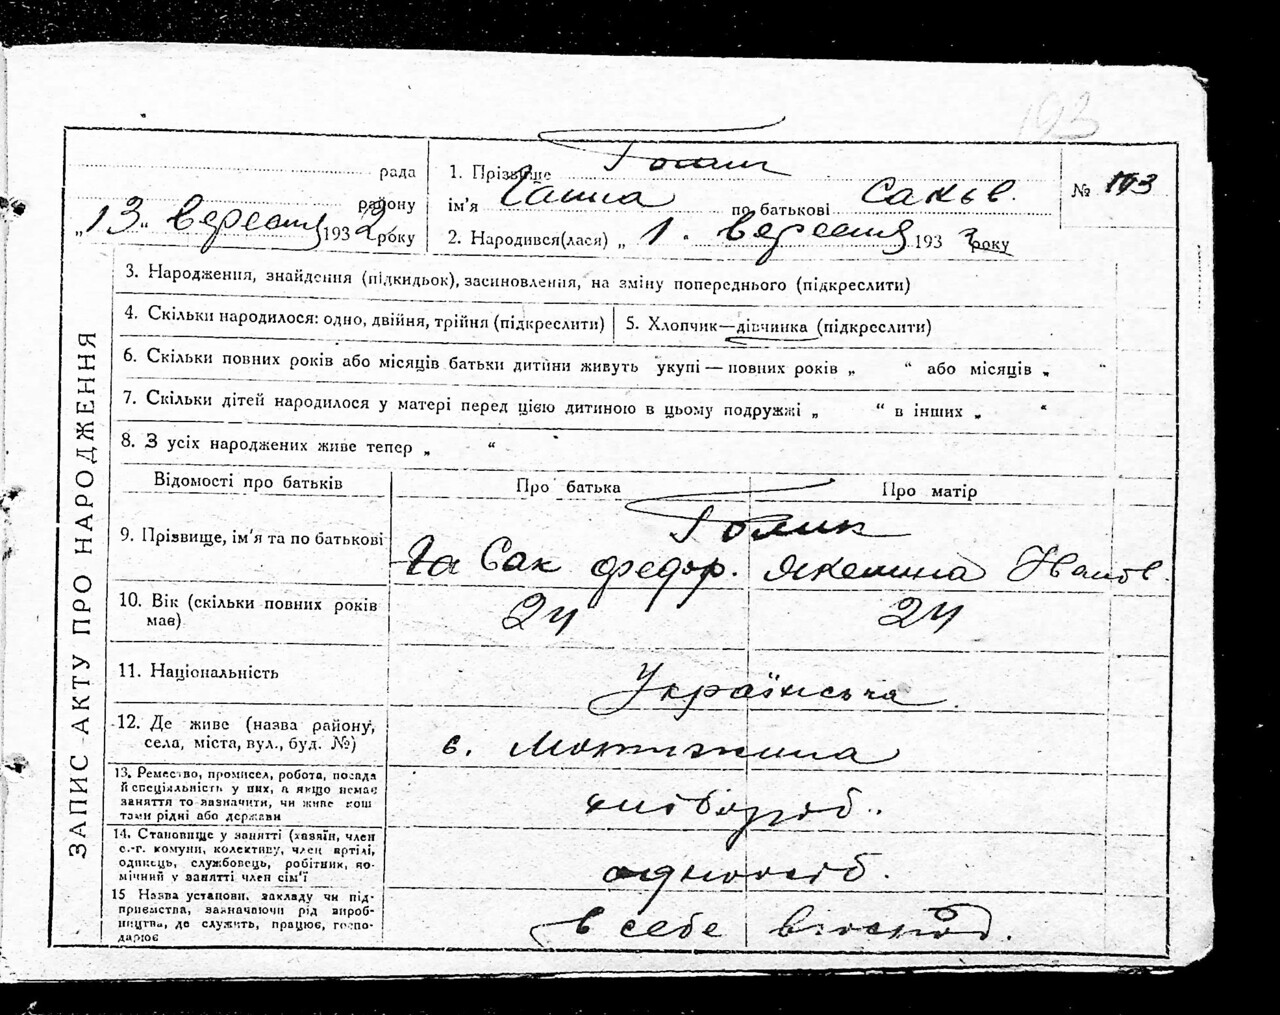 193
рада
району
„13“ вересня 1932 року
1. Прізвище Голик
ім'я Ганна по батькові Сакьв.
2. Народився(лася) „ 1. вересня 1932 року
№ 193
ЗАПИС АКТУ ПРО НАРОДЖЕННЯ
3. Народження, знайдення (підкидьок), засиновлення, на зміну попереднього (підкреслити)
4. Скільки народилося: одно, двійня, трійня (підкреслити)
5. Хлопчик—дівчинка (підкреслити)
6. Скільки повних років або місяців батьки дитини живуть укупі — повних років „ “ або місяців „ “
7. Скільки дітей народилося у матері перед цією дитиною в цьому подружжі „ “ в інших „ “
8. З усіх народжених живе тепер „ “
Відомості про батьків
Про батька
Про матір
9. Прізвище, ім'я та по батькові
Голик
Сак Федор. Якелина Іванов.
10. Вік (скільки повних років
має)
24 24
11. Національність
Українська
12. Де живе (назва району,
села, міста, вул., буд. №)
с. Мотижина
13. Ремество, промисел, робота, посада
й спеціяльність у них, а якщо немає
заняття то зазначити, чи живе кош
тами рідні або держави
хлібороб.
14. Становище у занятті (хазяїн, член
с.-г. комуни, колективу, член артілі,
одинець, службовець, робітник, по-
мічний у занятті член сім'ї
одноосіб.
15 Назва установи, закладу чи під-
приємства, зазначаючи рід вироб-
ництва, де служить, працює, госпо-
дарює
в себе в господ.